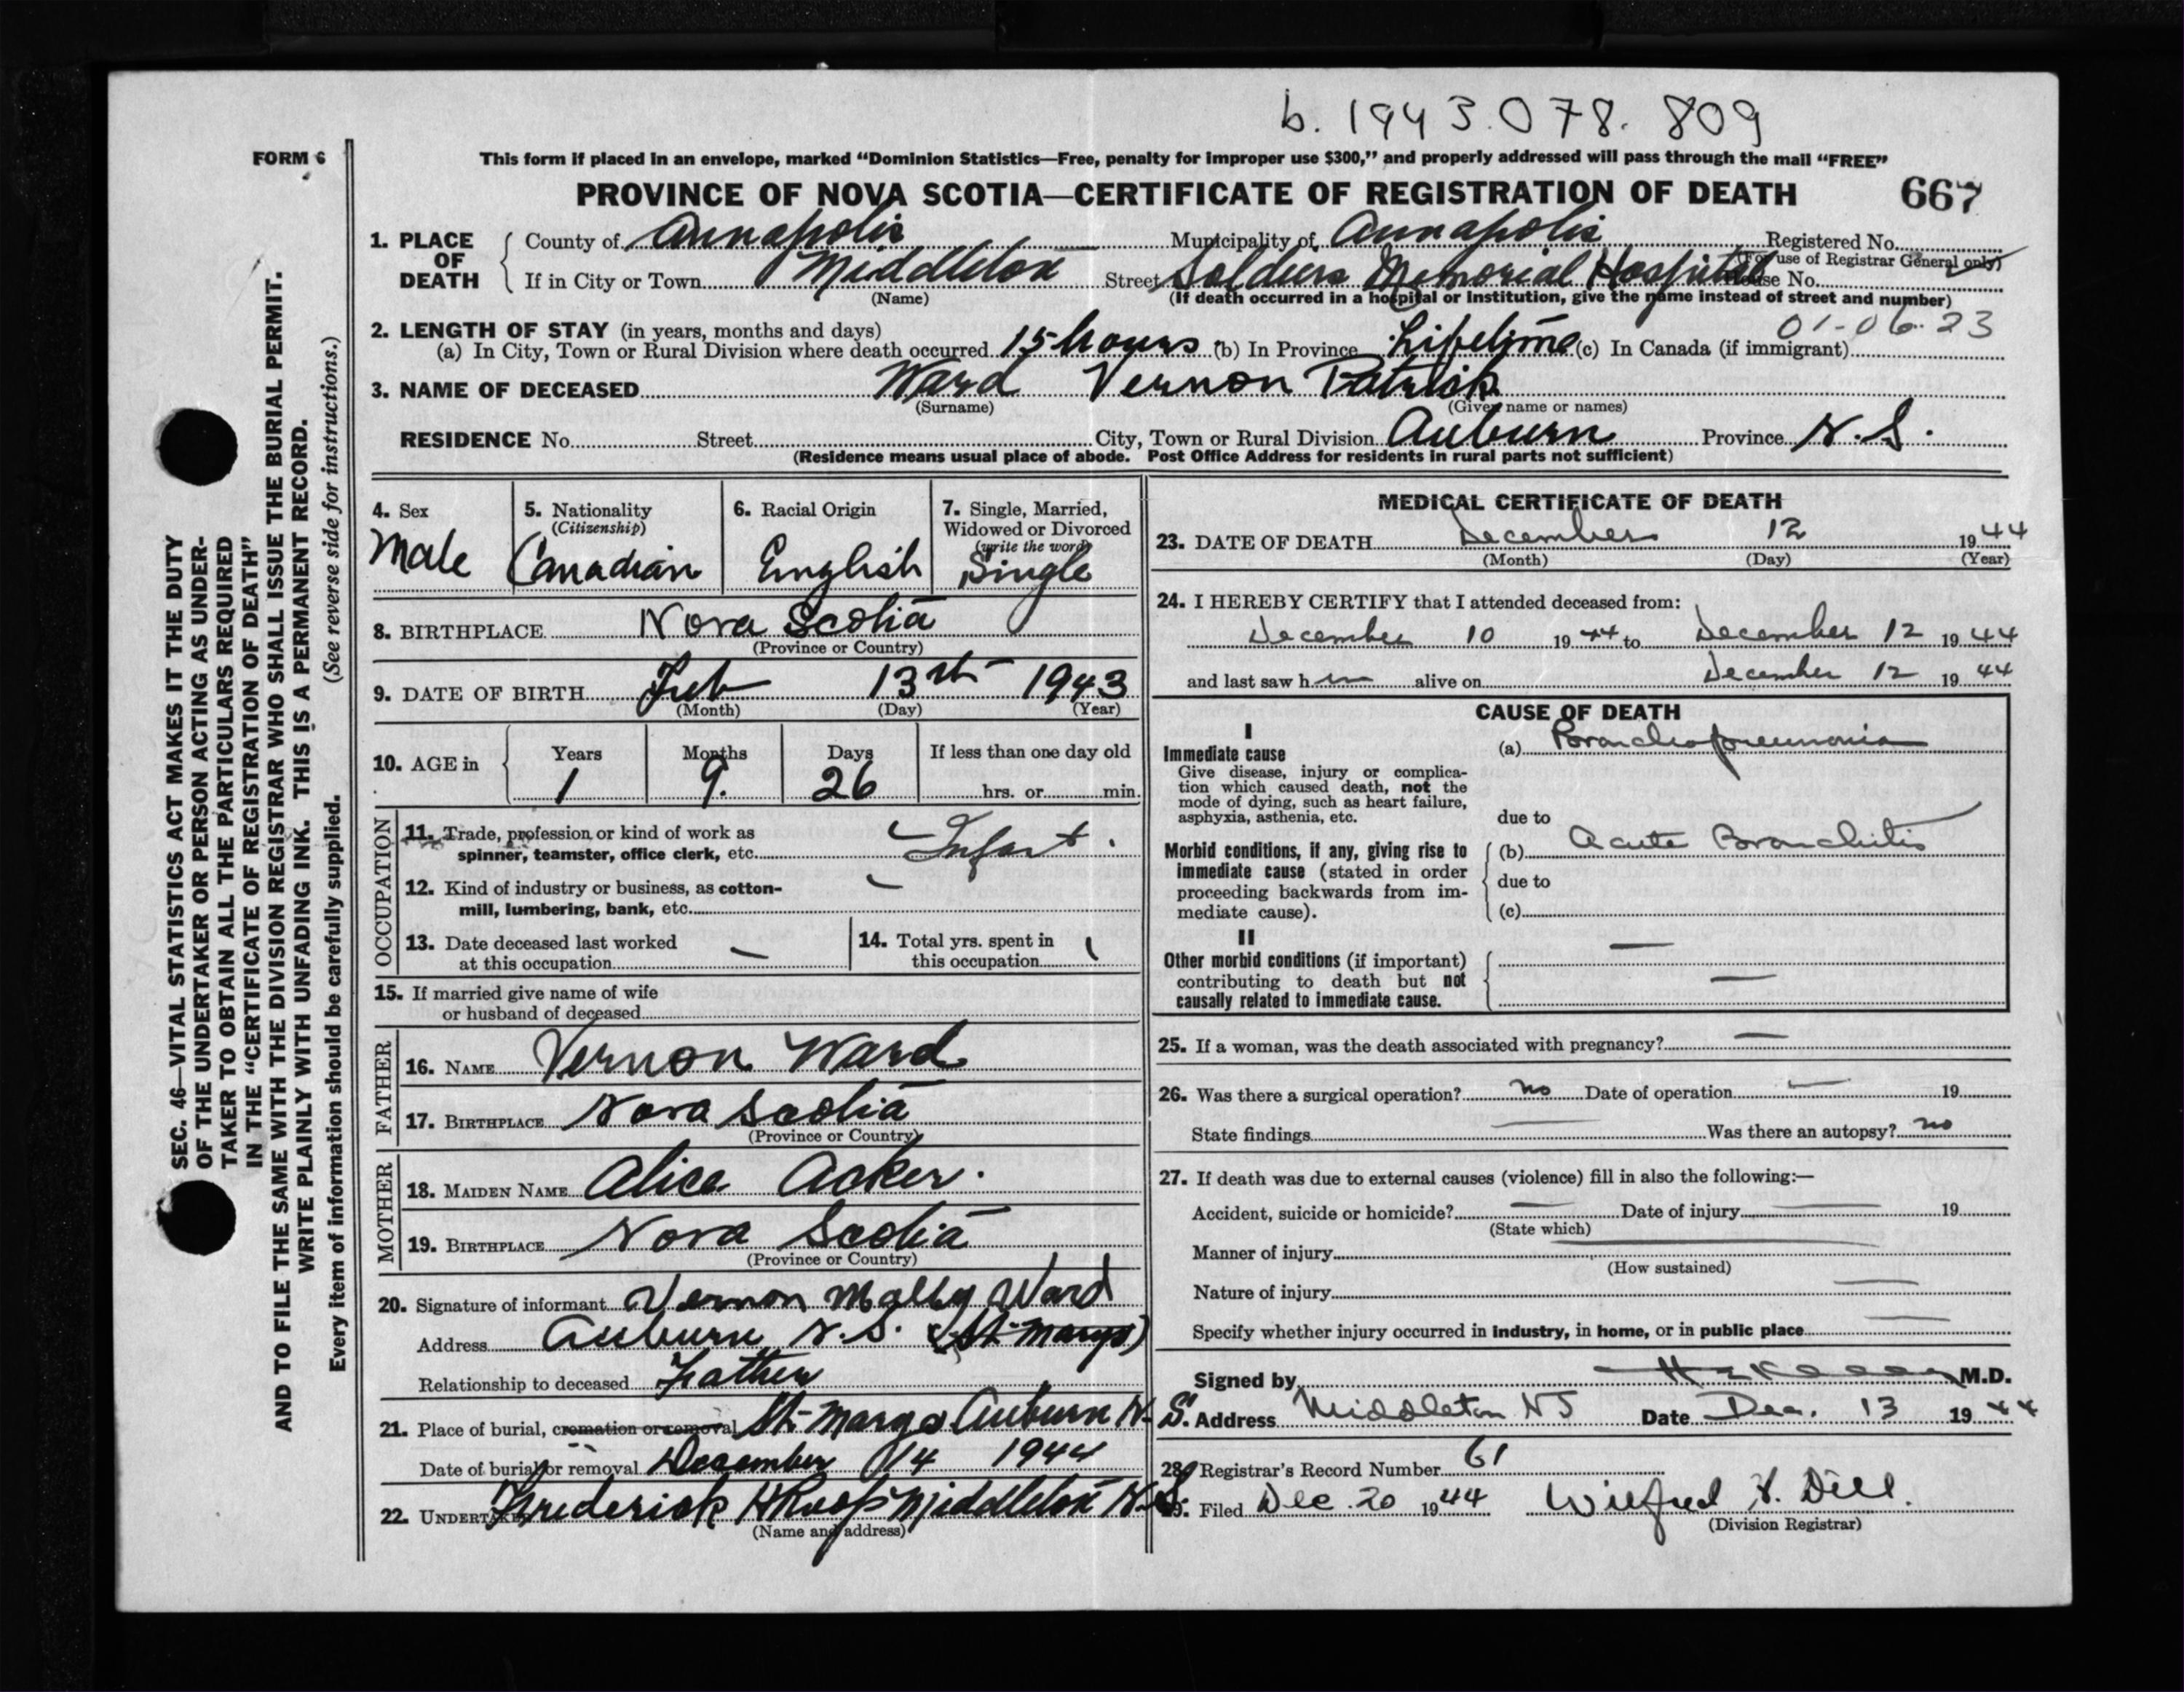 b. 1943.078.809
FORM 6
This form if placed in an envelope, marked “Dominion Statistics—Free, penalty for improper use $300,” and properly addressed will pass through the mail “FREE”
PROVINCE OF NOVA SCOTIA—CERTIFICATE OF REGISTRATION OF DEATH 667
1. PLACE OF DEATH
County of Annapolis Municipality of Annapolis Registered No.
(For use of Registrar General only)
If in City or Town Middleton Street Soldiers Memorial Hospital House No.
(Name) (If death occurred in a hospital or institution, give the name instead of street and number)
01-06-23
2. LENGTH OF STAY (in years, months and days)
(a) In City, Town or Rural Division where death occurred 15 hours (b) In Province Lifetime (c) In Canada (if immigrant)
3. NAME OF DECEASED Ward Vernon Patrick
(Surname) (Given name or names)
RESIDENCE No. Street City, Town or Rural Division Auburn Province N.S.
(Residence means usual place of abode. Post Office Address for residents in rural parts not sufficient)
4. Sex
Male
5. Nationality
(Citizenship)
Canadian
6. Racial Origin
English
7. Single, Married,
Widowed or Divorced
(write the word)
Single
8. BIRTHPLACE Nova Scotia
(Province or Country)
9. DATE OF BIRTH Feb 13th 1943
(Month) (Day) (Year)
10. AGE in
Years Months Days If less than one day old
1 9. 26 hrs. or min.
OCCUPATION
11. Trade, profession or kind of work as
spinner, teamster, office clerk, etc. Infant.
12. Kind of industry or business, as cotton-
mill, lumbering, bank, etc. —
13. Date deceased last worked
at this occupation —
14. Total yrs. spent in
this occupation
15. If married give name of wife
or husband of deceased
FATHER
16. NAME Vernon Ward
17. BIRTHPLACE Nova Scotia
(Province or Country)
MOTHER
18. MAIDEN NAME Alice Acker.
19. BIRTHPLACE Nova Scotia
(Province or Country)
20. Signature of informant Vernon Ward
Address Auburn N.S. (St-Marys)
Relationship to deceased Father
21. Place of burial, cremation or removal St-Marys Auburn N.S.
Date of burial or removal December 14 1944
22. UNDERTAKER Frederick H Roop Middleton N.S.
(Name and address)
MEDICAL CERTIFICATE OF DEATH
23. DATE OF DEATH December 12 1944
(Month) (Day) (Year)
24. I HEREBY CERTIFY that I attended deceased from:
December 10 1944 to December 12 1944
and last saw him alive on December 12 1944
CAUSE OF DEATH
I
Immediate cause
Give disease, injury or complica-
tion which caused death, not the
mode of dying, such as heart failure,
asphyxia, asthenia, etc.
(a) Bronchopneumonia
due to
Morbid conditions, if any, giving rise to
immediate cause (stated in order
proceeding backwards from im-
mediate cause).
(b) Acute Bronchitis
due to
(c)
II
Other morbid conditions (if important)
contributing to death but not
causally related to immediate cause.
—
—
25. If a woman, was the death associated with pregnancy? —
26. Was there a surgical operation? no Date of operation — 19
State findings — Was there an autopsy? no
27. If death was due to external causes (violence) fill in also the following:—
Accident, suicide or homicide? — Date of injury — 19
(State which)
Manner of injury —
(How sustained)
Nature of injury —
Specify whether injury occurred in industry, in home, or in public place —
Signed by M.D.
Address Middleton NS Date Dec. 13 1944
28. Registrar's Record Number 61
29. Filed Dec. 20 1944 Wilfred Dill.
(Division Registrar)
SEC. 46—VITAL STATISTICS ACT MAKES IT THE DUTY
OF THE UNDERTAKER OR PERSON ACTING AS UNDER-
TAKER TO OBTAIN ALL THE PARTICULARS REQUIRED
IN THE “CERTIFICATE OF REGISTRATION OF DEATH”
AND TO FILE THE SAME WITH THE DIVISION REGISTRAR WHO SHALL ISSUE THE BURIAL PERMIT.
WRITE PLAINLY WITH UNFADING INK. THIS IS A PERMANENT RECORD.
Every item of information should be carefully supplied. (See reverse side for instructions.)